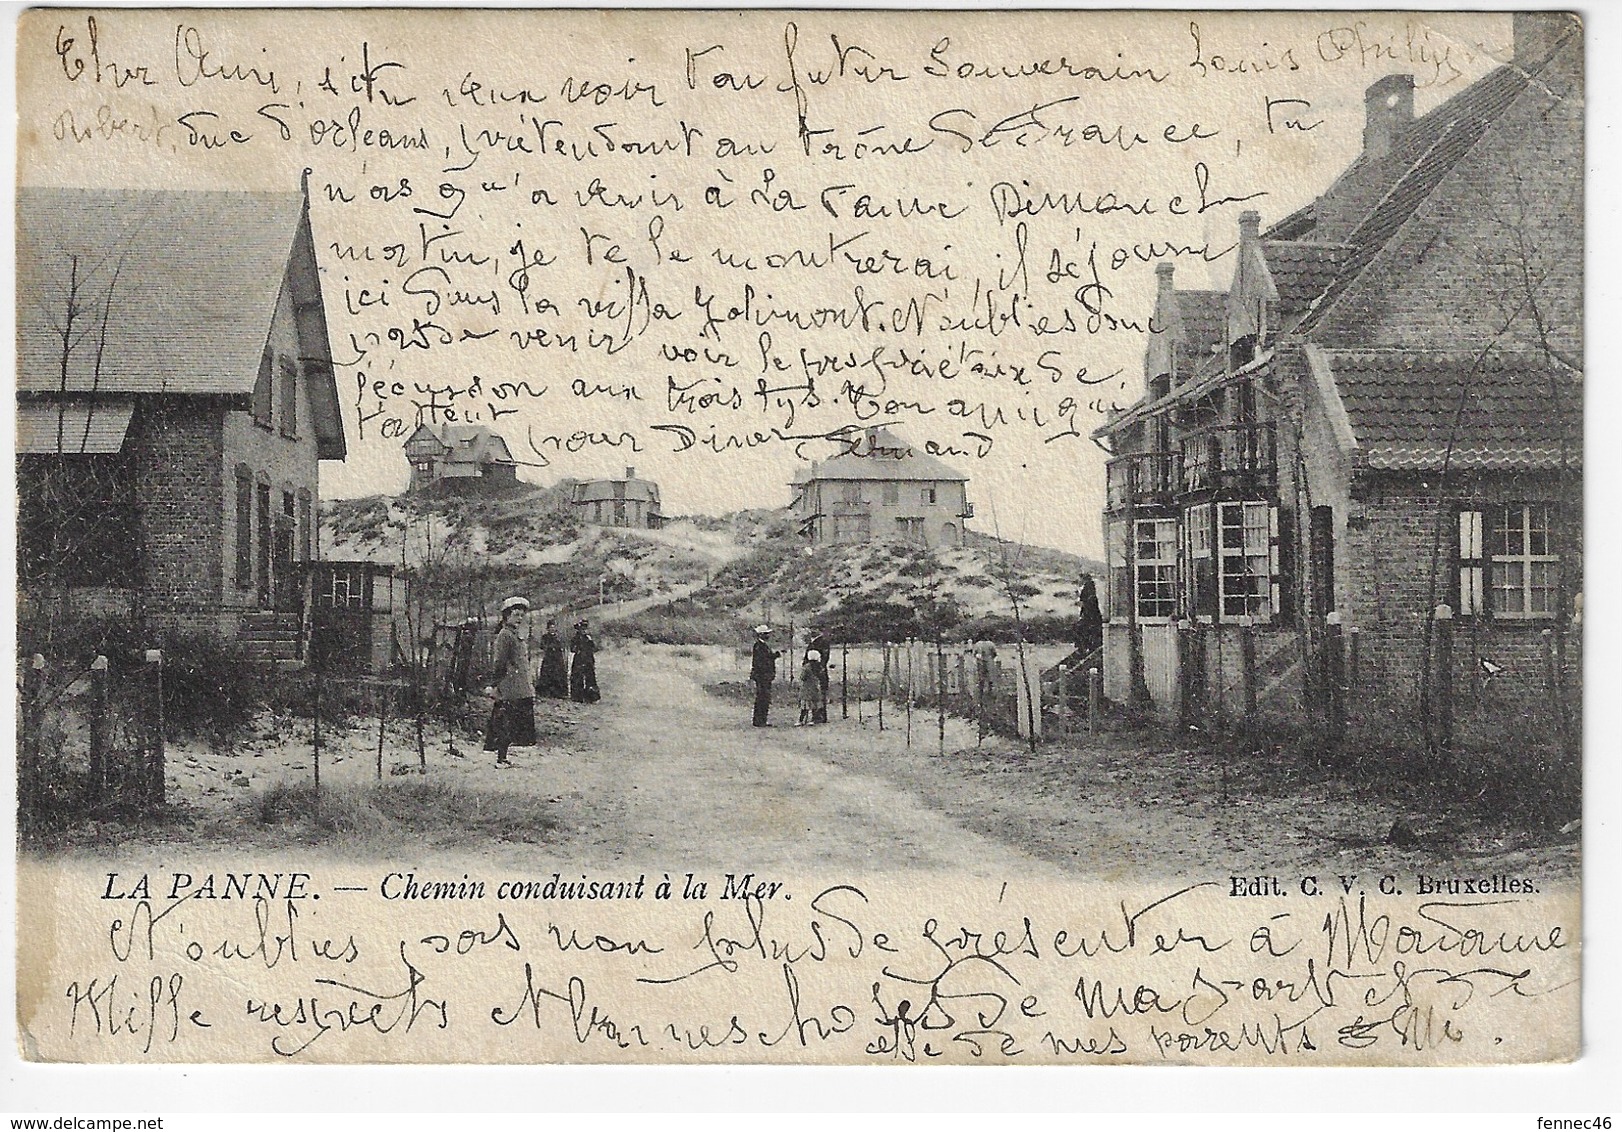 Cher Ami, si tu veux voir ton futur Souverain Louis Philippe
Robert, duc d'orléans, prétendant au trône de France, tu
n'as qu'a venir à La Panne Dimanche
matin, je te le montrerai, il séjourne
ici dans la villa N'oublies donc
pas de venir voir le propriétaire de
l'écusson aux trois lys. Ton ami qui
t'attend pour Diner Fernand
LA PANNE. — Chemin conduisant à la Mer.
Edit. C. V. C. Bruxelles.
N'oublies pas non plus de présenter à Madame
Mille respects et bonnes choses de ma part et de
celle de mes parents
fennec46